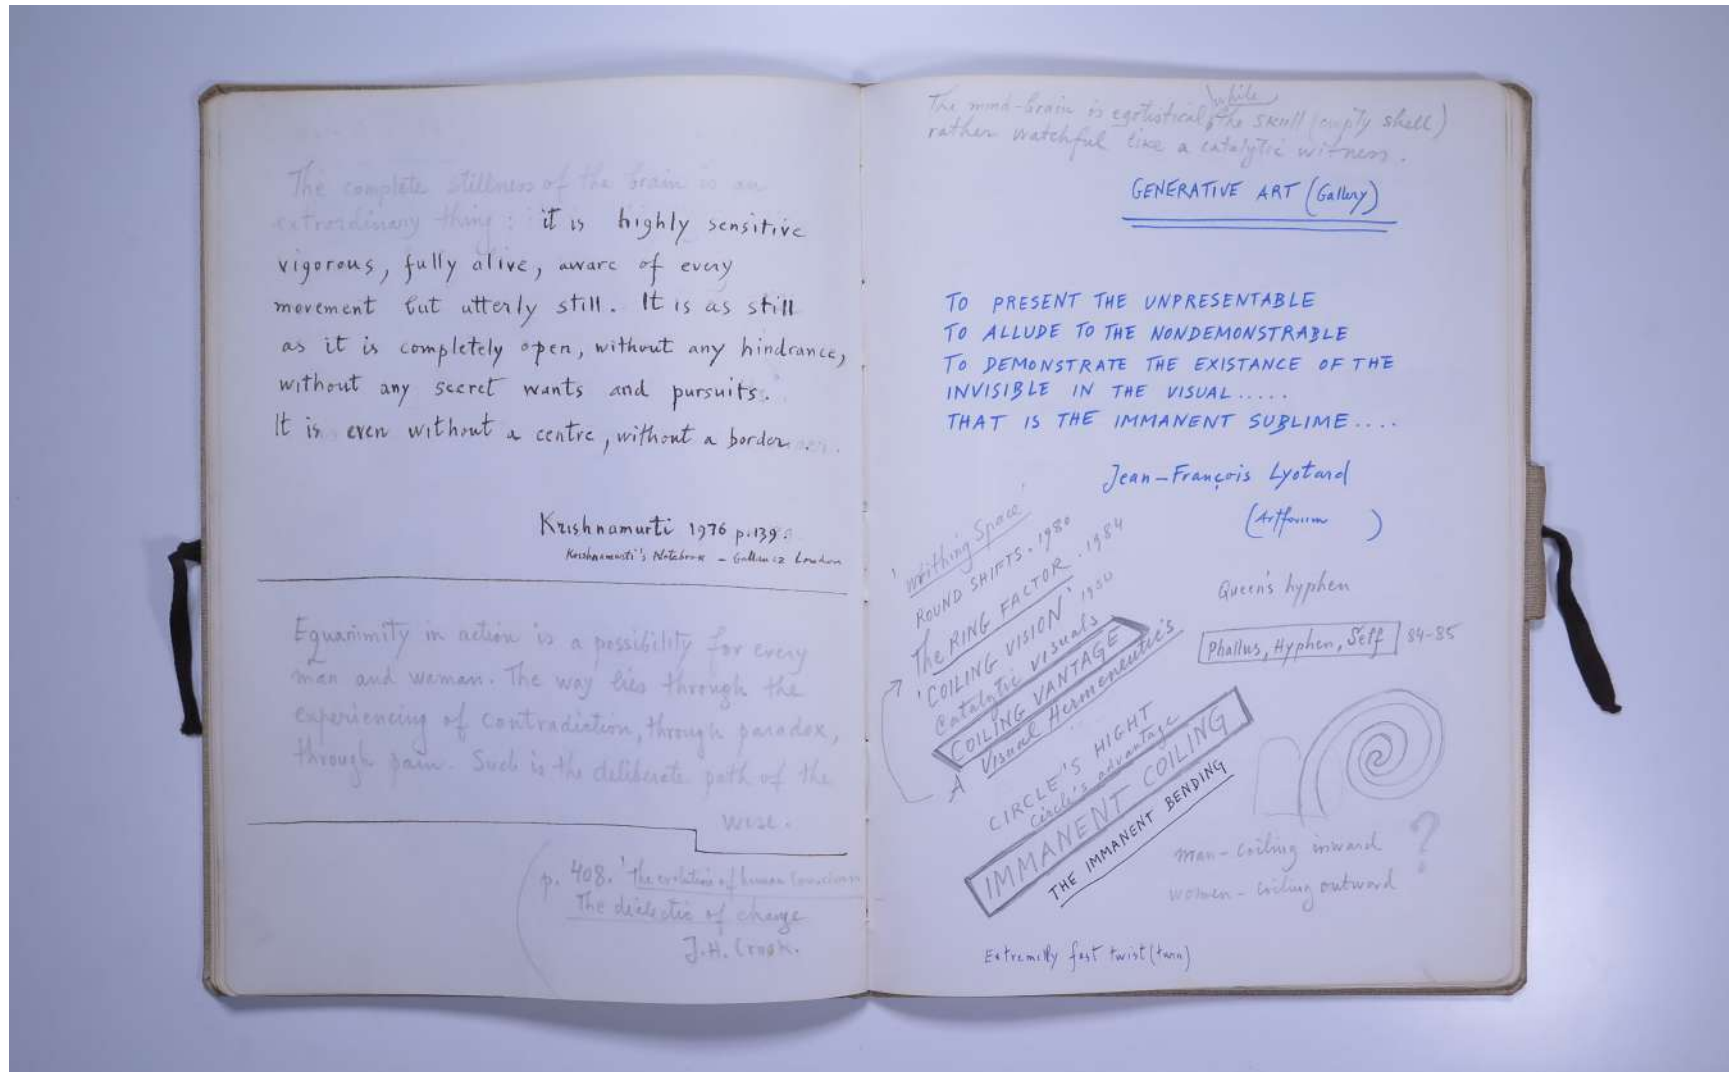 The complete stillness of the brain is an
extraordinary thing : it is highly sensitive
vigorous, fully alive, aware of every
movement but utterly still. It is as still
as it is completely open, without any hindrance,
without any secret wants and pursuits.
It is even without a centre, without a border
Krishnamurti 1976 p.139.
Krishnamurti's Notebook - Gollancz London
Equanimity in action is a possibility for every
man and woman. The way lies through the
experiencing of contradiction, through paradox,
through pain. Such is the deliberate path of the
wise.
p. 408. 'The evolution of human
The dialectic of change
J.H. Crook.
The mind-brain is egotistical, while the skull (empty shell)
rather watchful like a catalytic witness.
GENERATIVE ART (Gallery)
TO PRESENT THE UNPRESENTABLE
TO ALLUDE TO THE NONDEMONSTRABLE
TO DEMONSTRATE THE EXISTANCE OF THE
INVISIBLE IN THE VISUAL.....
THAT IS THE IMMANENT SUBLIME....
Jean-François Lyotard
(Artforum )
'Writhing Space'
ROUND SHIFTS. 1980
The RING FACTOR. 1984
'COILING VISION' 1980
Catalytic visuals
COILING VANTAGE
A Visual Hermeneutic's
CIRCLE'S HIGHT
Circle's advantage
IMMANENT COILING
THE IMMANENT BENDING
Queen's hyphen
Phallus, Hyphen, Self 84-85
man - coiling inward ?
women - coiling outward
Extremlly fast twist (turn)